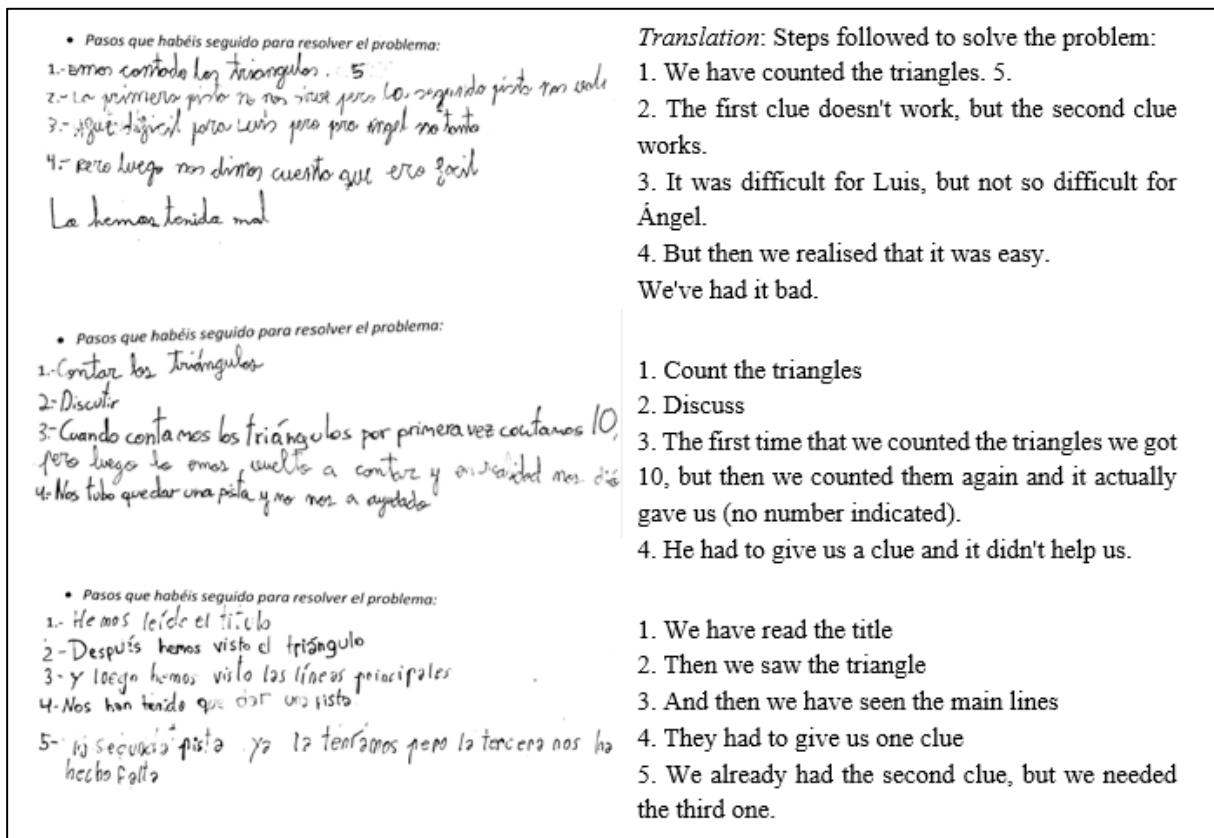 • Pasos que habéis seguido para resolver el problema:
1.- emos contado los triangulos. 5
2.- La primera pista no nos sirve pero la segunda pista nos vale
3.- fque difícil para Luis pero pra ángel no tanto
4.- pero luego nos dimos cuenta que era facil
La hemos tenida mal
• Pasos que habéis seguido para resolver el problema:
1.- Contar los triángulos
2.- Discutir
3.- Cuando contamos los triángulos por primera vez contamos 10,
pero luego lo emos vuelto a contar y en realidad nos dió
4.- Nos tubo que dar una pista y no nos a ayudado
• Pasos que habéis seguido para resolver el problema:
1.- Hemos leíde el titulo
2 - Después hemos visto el triángulo
3 - y luego hemos visto las líneas principales
4 - Nos han tenido que dar una pista
5 - la segunda pista ya la teníamos pero la tercera nos ha
hecho falta
Translation: Steps followed to solve the problem:
1. We have counted the triangles. 5.
2. The first clue doesn't work, but the second clue
works.
3. It was difficult for Luis, but not so difficult for
Ángel.
4. But then we realised that it was easy.
We've had it bad.
1. Count the triangles
2. Discuss
3. The first time that we counted the triangles we got
10, but then we counted them again and it actually
gave us (no number indicated).
4. He had to give us a clue and it didn't help us.
1. We have read the title
2. Then we saw the triangle
3. And then we have seen the main lines
4. They had to give us one clue
5. We already had the second clue, but we needed
the third one.